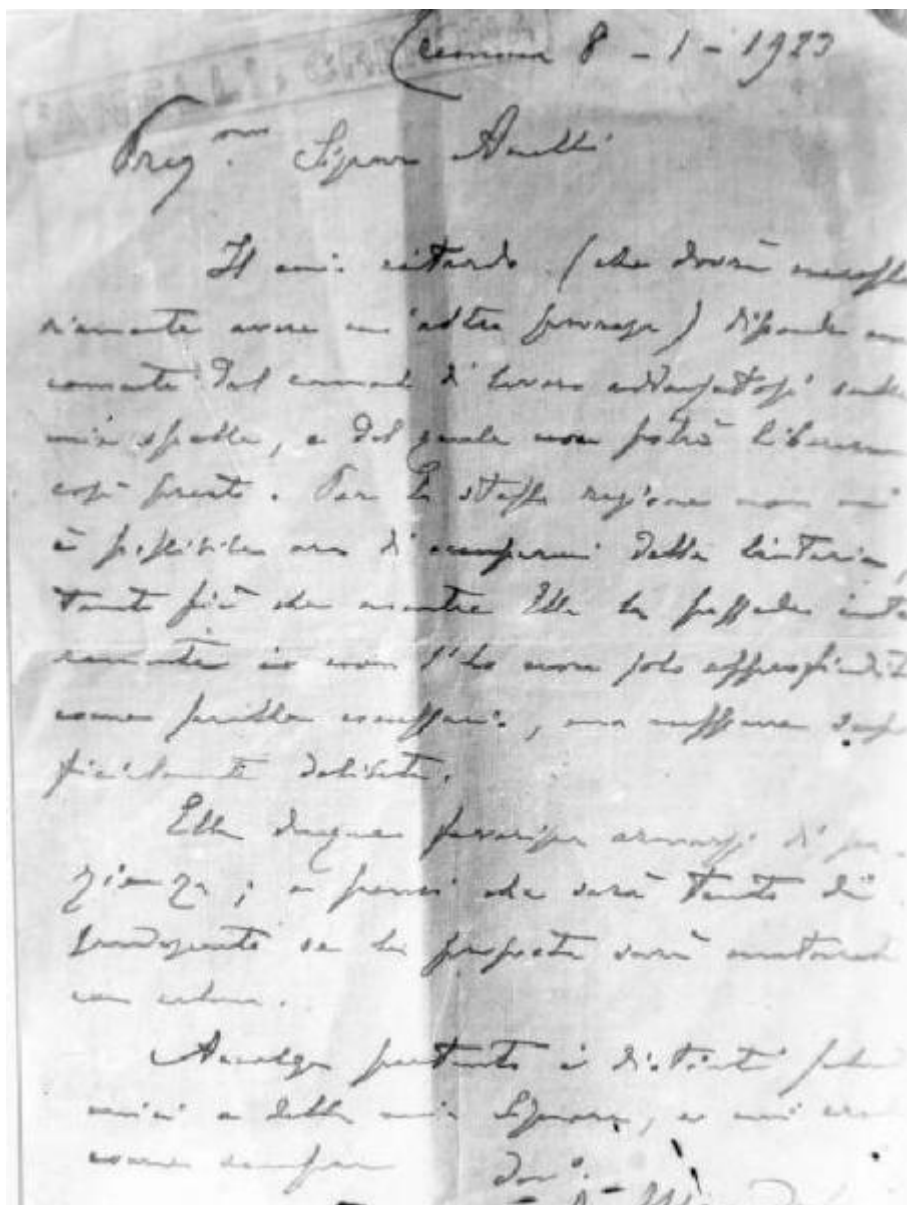 Cremona 8-1-1923
Preg.mo Signor Anelli
Il mio ritardo (che dovrà necessa
riamente avere un'altra proroga) dipende
dal cumulo di lavoro addossatosi sulle
mie spalle, e dal quale non potrò liberarmi
così presto. Per la stessa ragione non mi
è possibile ora di occuparmi della
tanto più che mentre Ella la possiede inte
ramente io non l'ho non solo approfondita
come sarebbe necessario, ma neppure super
ficialmente delibata.
Ella dunque favorisca armarsi di pa
zienza; e pensi che sarà tanto di
guadagnato se la proposta sarà maturata
con calma.
Accolga pertanto i distinti saluti
miei e della mia Signora, e mi creda
come sempre dev.o